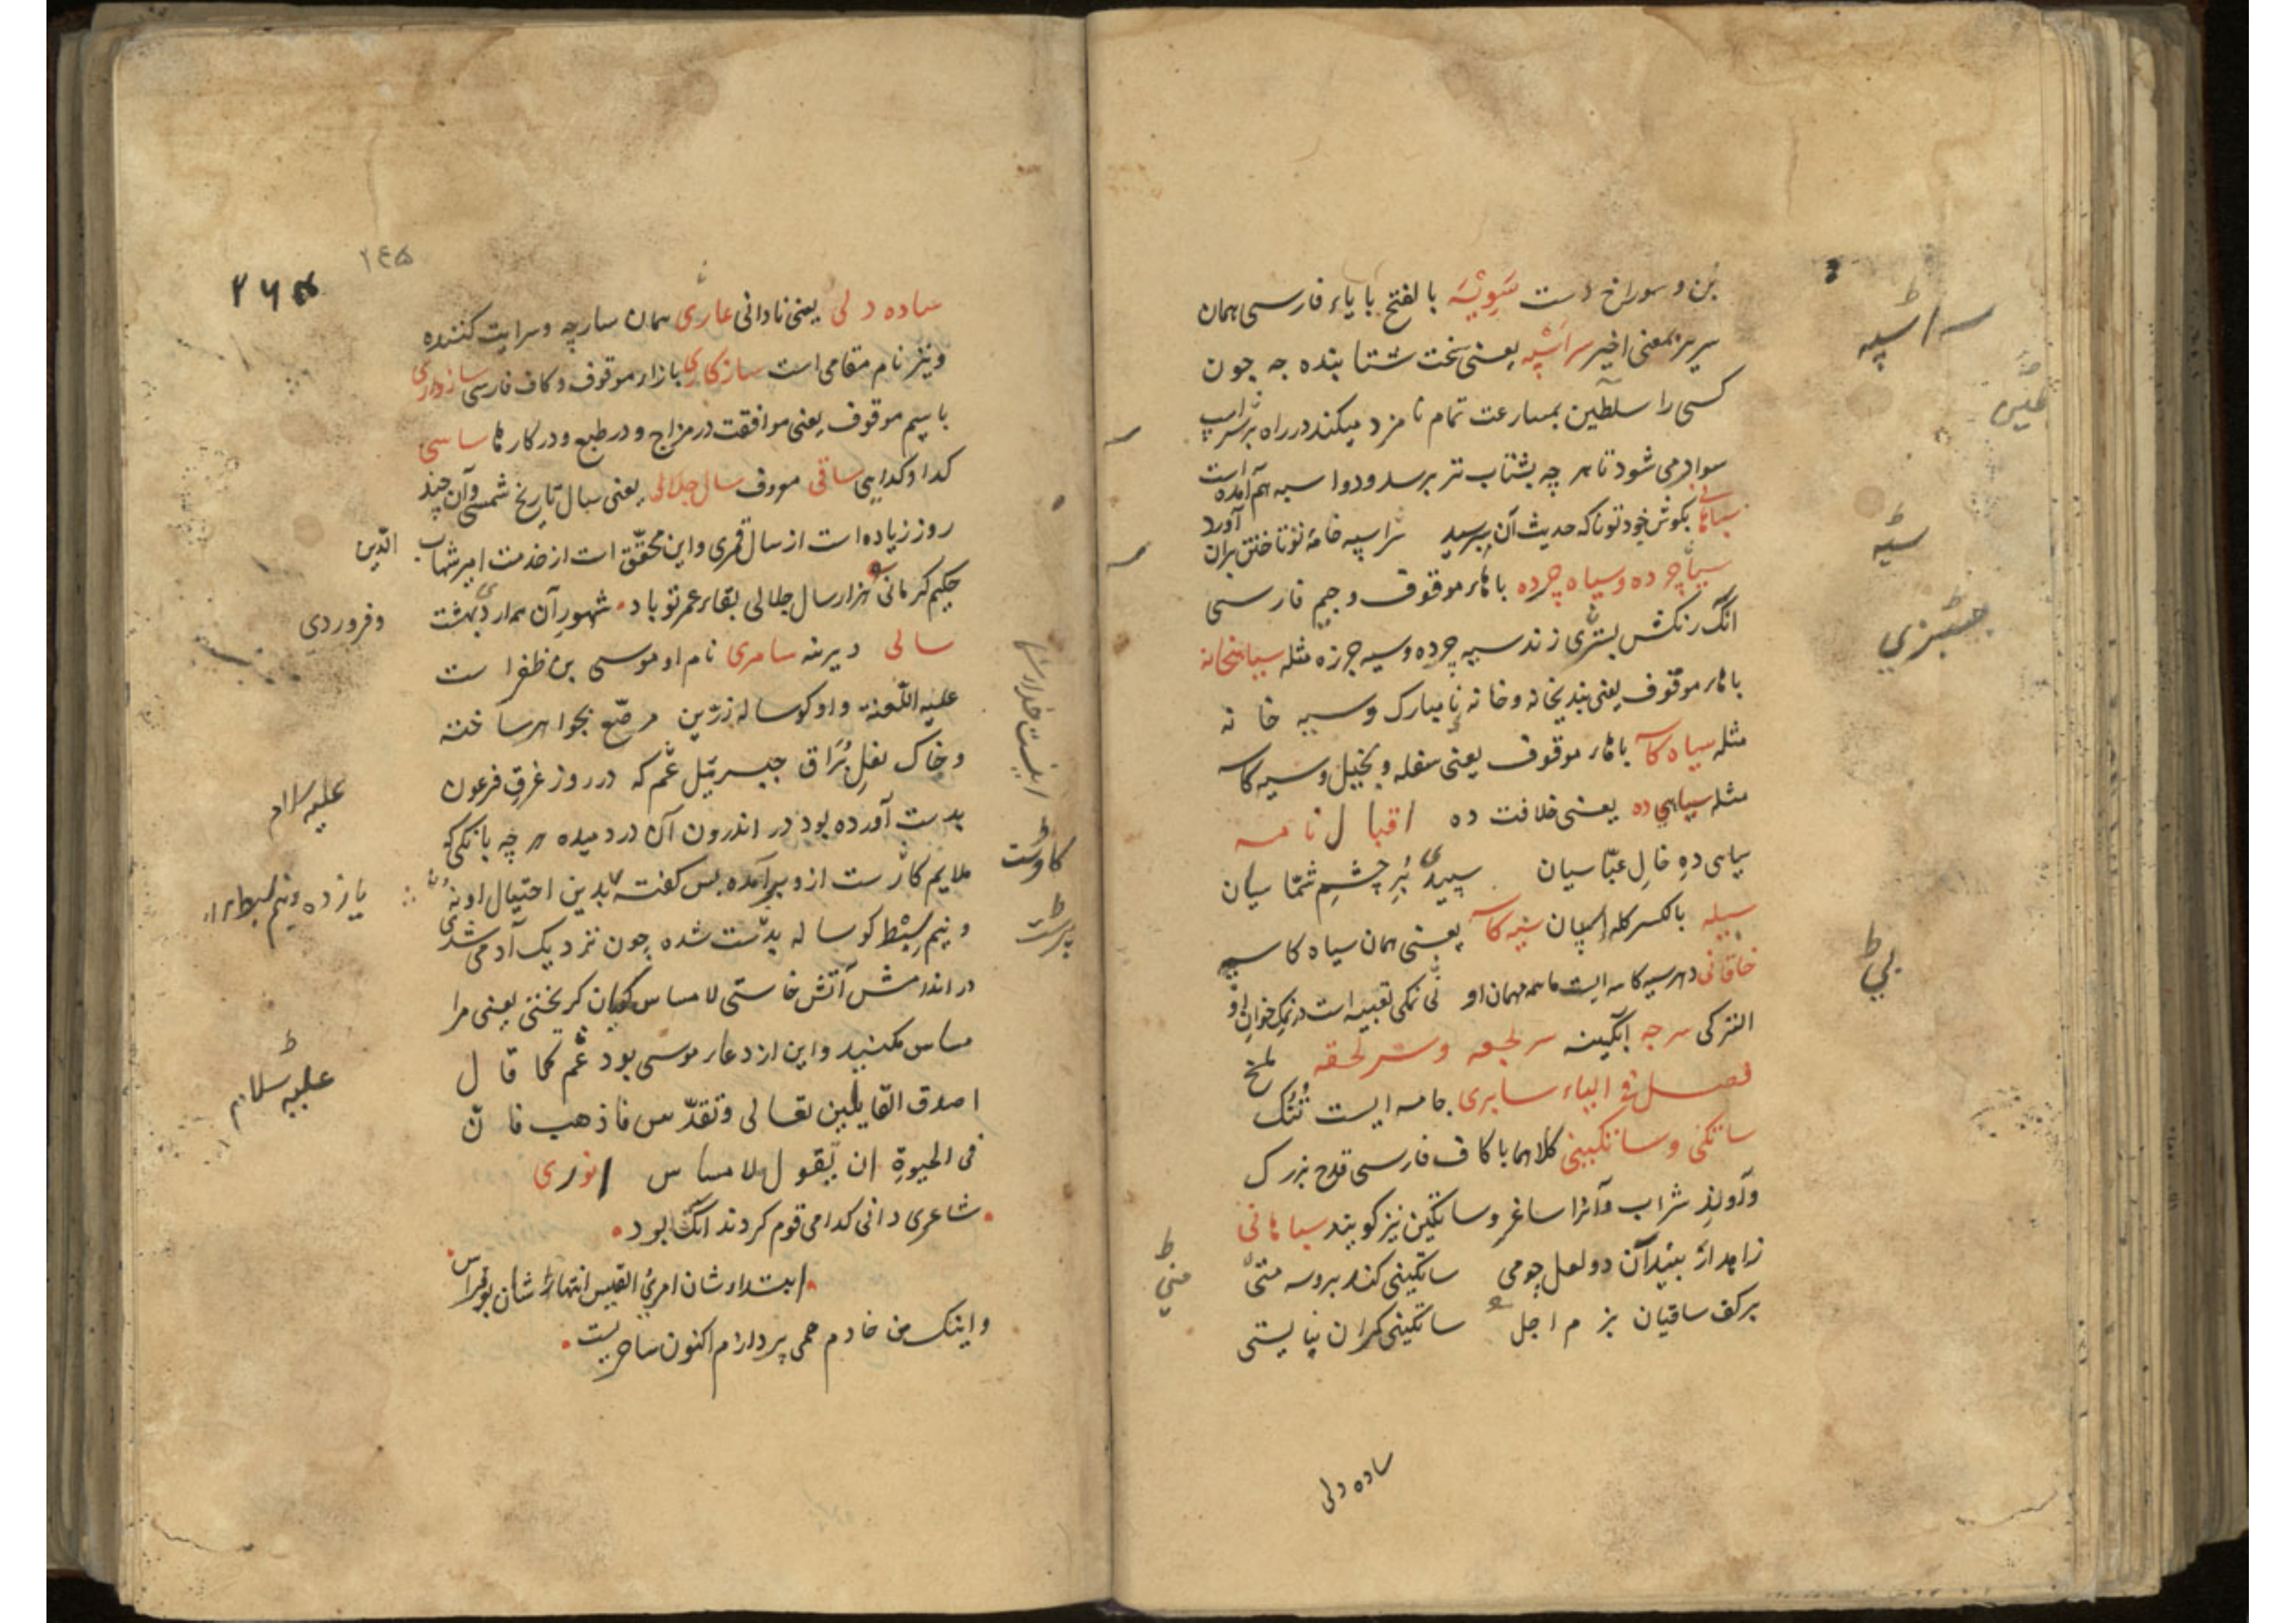 بن و سوراخ است سویسه بالفتح با یاء فارسی همان
سریر بمعنی اخیر سراسپه یعنی سخت شتابنده جه چون
کسی را سلاطین بمسارعت تمام نامزد میکند در راه بر سر اسپ
سوار می شود تا هر چه بشتاب تر برسد و دو اسپه هم آمده است
بگوش خود تو نا که حدیث آن برسید سراسپه خامه تو تاختن بران آورد
سیاچرده و سیاه چرده با هاء موقوف و جیم فارسی
انک رنکش بسبزی زند سیه چرده و سیه جرزه مثله سیاهخانه
با هاء موقوف یعنی بندیخانه و خانه نامبارک و سیه خانه
مثله سیاه کاسه با هاء موقوف یعنی سفله و بخیل و سیه کاسه
مثله سیاهی ده یعنی خلافت ده اقبال نامه
سیاهی دهِ خالِ عبّاسیان سپیدی بَرِ چشمِ شمّاسیان
سبیله بالکسر کله اسپان سیه کاسه یعنی همان سیاه کاسه
خاقانی دهر سیه کاسه ایست ما همه مهمان او بی نمکی تعبیه است در نمک خوان او
الترکی سرجه ابکینه سرلجعه و سرلحقه ملخ
فصل فی الیاء سابری جامه ایست تُنُک
ساتکنی و ساتکینی کلاهما با کاف فارسی قدح بزرک
و آوند شراب و آنرا ساغر و ساتکین نیز کویند سپاهانی
زاهد ار بیند آن دو لعل چو می ساتکینی کند بروسه منی
بر کف ساقیان بزم اجل ساتکینی کران نبایستی
ساده دلی
سراسپه
سیه
بسبزی
بی
منی
۲۶۵
۲۶۵
ساده دلی یعنی نادانی عاری همان سارچه و سرایت کننده
و نیز نام مقامی است سازکاری با زاء موقوف و کاف فارسی سازواری
با سیم موقوف یعنی موافقت در مزاج و در طبع و در کارها ساسی
کدا و کدایی ساقی معروف سال جلالی یعنی سال تاریخ شمسی و آن چند
روز زیاده است از سال قمری و این محقّق است از خدمت امیر شهاب الدّین
حکیم کرمانی هزار سال جلالی بقاء عمر تو باد شهورِ آن همه اردیبهشت و فروردی
سالی دیرینه سامری نام او موسی بن ظفر است
علیه اللّعنة و او کوساله زرّین مرصّع بجواهر ساخته
و خاک نعلِ بُراق جبرئیل عم که در روز غرقِ فرعون
بدست آورده بود در اندرون آن در دمیده هر چه بانکی که
ملایم کاوست از و برآمده پس کفته بدین احتیال او نه
و نیم سِبْط کوساله پرست شده چون نزدیک آدمی شدی
در اندامش آتش خاستی لا مساس کویان کریختی یعنی مرا
مساس مکنید و این از دعاء موسی بود عم کما قال
اصدق القایلین تعالی و تقدّس فاذهب فان
فی الحیوةِ ان تقول لا مساس انوری
شاعری دانی کدامی قوم کردند انک بود
ابتداء شان امرئ القیس انتهاء شان بوفراس
و اینک من خادم همی پردازم اکنون ساحریست
علیه السلام
یازده و نیم سبط
علیه السلام
کاوست
پرست